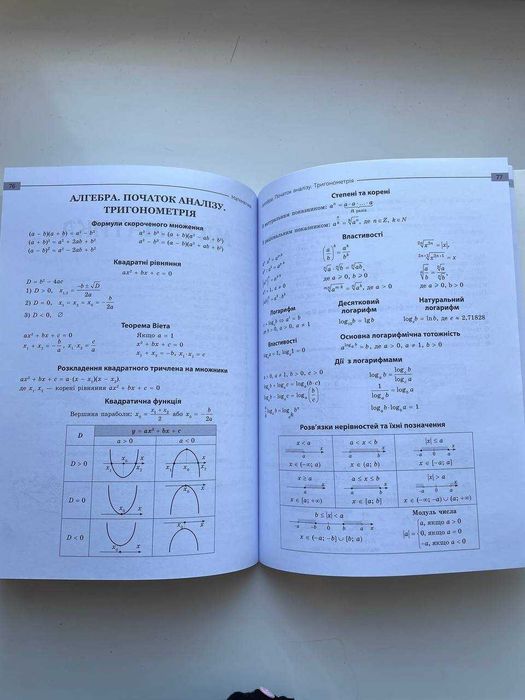 76
Математика
АЛГЕБРА. ПОЧАТОК АНАЛІЗУ.
ТРИГОНОМЕТРІЯ
Формули скороченого множення
(a − b)(a + b) = a² − b²
(a + b)² = a² + 2ab + b²
(a − b)² = a² − 2ab + b²
a³ + b³ = (a + b)(a² − ab + b²)
a³ − b³ = (a − b)(a² + ab + b²)
Квадратні рівняння
ax² + bx + c = 0
D = b² − 4ac
1) D > 0, x₁,₂ = (−b ± √D)/2a
2) D = 0, x₁ = x₂ = −b/2a
3) D < 0, ∅
Теорема Вієта
ax² + bx + c = 0
x₁ + x₂ = −b/a, x₁·x₂ = c/a
Якщо a = 1
x² + bx + c = 0
x₁ + x₂ = −b, x₁·x₂ = c
Розкладення квадратного тричлена на множники
ax² + bx + c = a·(x − x₁)(x − x₂)
де x₁, x₂ — корені рівняння ax² + bx + c = 0
Квадратична функція
Вершина параболи: x₀ = (x₁ + x₂)/2 або x₀ = −b/2a
D
y = ax² + bx + c
a > 0
a < 0
D > 0
D = 0
D < 0
Початок аналізу. Тригонометрія
77
Степені та корені
показником: aⁿ = a·a·...·a
n разів
показником:
де n∈Z, k∈N
Властивості
(a/b)ⁿ = aⁿ/bⁿ
a > 0, b > 0
де a > 0
²ⁿ√x²ⁿ = |x|,
²ⁿ⁺¹√x²ⁿ⁺¹ = x
де a ⩾ 0, b > 0
Логарифм
b > 0, a > 0, a ≠ 1
Десятковий
логарифм
log₁₀b = lg b
Натуральний
логарифм
logₑb = ln b, де e ≈ 2,71828
Властивості
logₐa = 1, logₐ1 = 0
Основна логарифмічна тотожність
a^(logₐb) = b, де a > 0, a ≠ 1, b > 0
Дії з логарифмами
a > 0, a ≠ 1, b > 0, c > 0
logₐb + logₐc = logₐ(b·c)
logₐb − logₐc = logₐ(b/c)
logₐb = log_c b/log_c a
Розв'язки нерівностей та їхні позначення
x < a
a < x < b
|x| ⩽ a
x ∈ (−∞; a)
x ∈ (a; b)
x ∈ [−a; a]
x ⩾ a
a ⩽ x ⩽ b
|x| > a
x ∈ [a; +∞)
x ∈ [a; b]
x ∈ (−∞; −a) ∪ (a; +∞)
b ⩽ |x| < a
x ∈ (−a; −b] ∪ [b; a)
Модуль числа
|a| = { a, якщо a > 0
0, якщо a = 0
−a, якщо a < 0